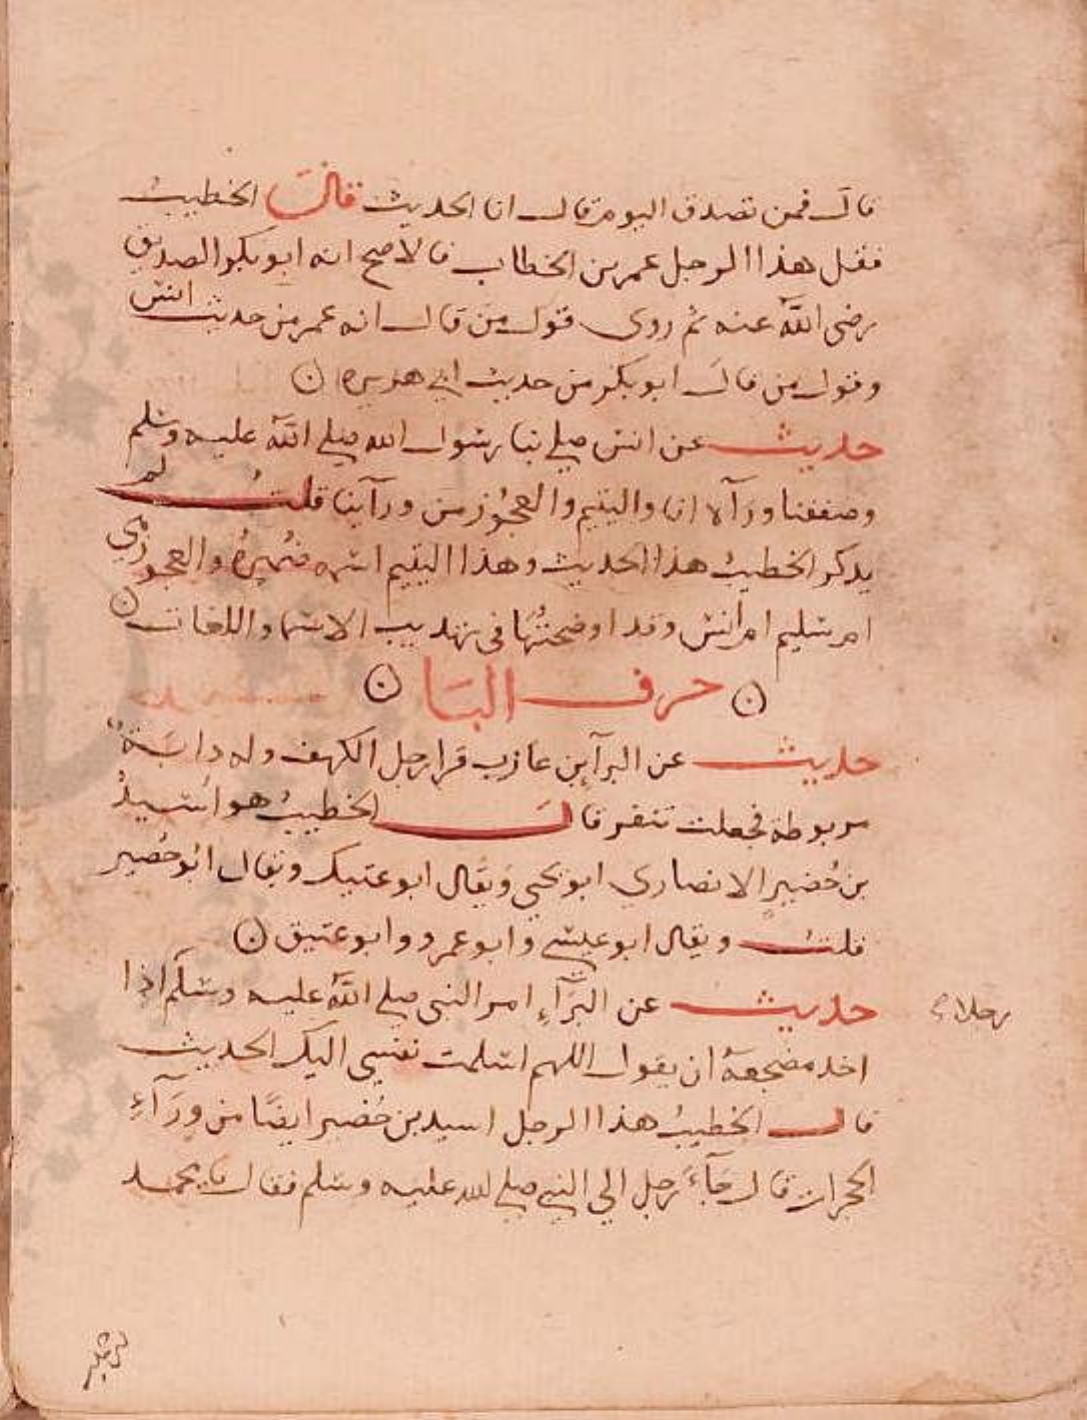 قال فمن تصدق اليوم قال انا الحديث قال الخطيب
فقيل هذا الرجل عمر بن الخطاب قال الاصح انه ابو بكر الصديق
رضى الله عنه ثم روى قول من قال انه عمر من حديث انس
وقول من قال ابو بكر من حديث ابي هريرة
حديث عن انس صلى بنا رسول الله صلى الله عليه وسلم
وصففنا ورآه انا واليتيم والعجوز من ورآينا قلت لم
يذكر الخطيب هذا الحديث وهذا اليتيم اسمه ضميرة والعجوز هي
ام سليم ام انس وقد اوضحتها في تهذيب الاسما واللغات
حرف البا
حديث عن البرآ بن عازب قرا رجل الكهف وله دابة
مربوطة فجعلت تنفر قال الخطيب هو اسيد
بن حضير الانصاري ابو يحيى ويقال ابو عتيك ويقال ابو حضير
قلت ويقال ابو عيسى وابو عمرو وابو عتيق
حديث عن البرآء امر النبى صلى الله عليه وسلم اذا
رجلا
اخد مضجعه ان يقول اللهم اسلمت نفسي اليك الحديث
قال الخطيب هذا الرجل اسيد بن حضير ايضا من ورآء
الحجرات قال جآء رجل الى النبي صلى الله عليه وسلم فقال يا محمد